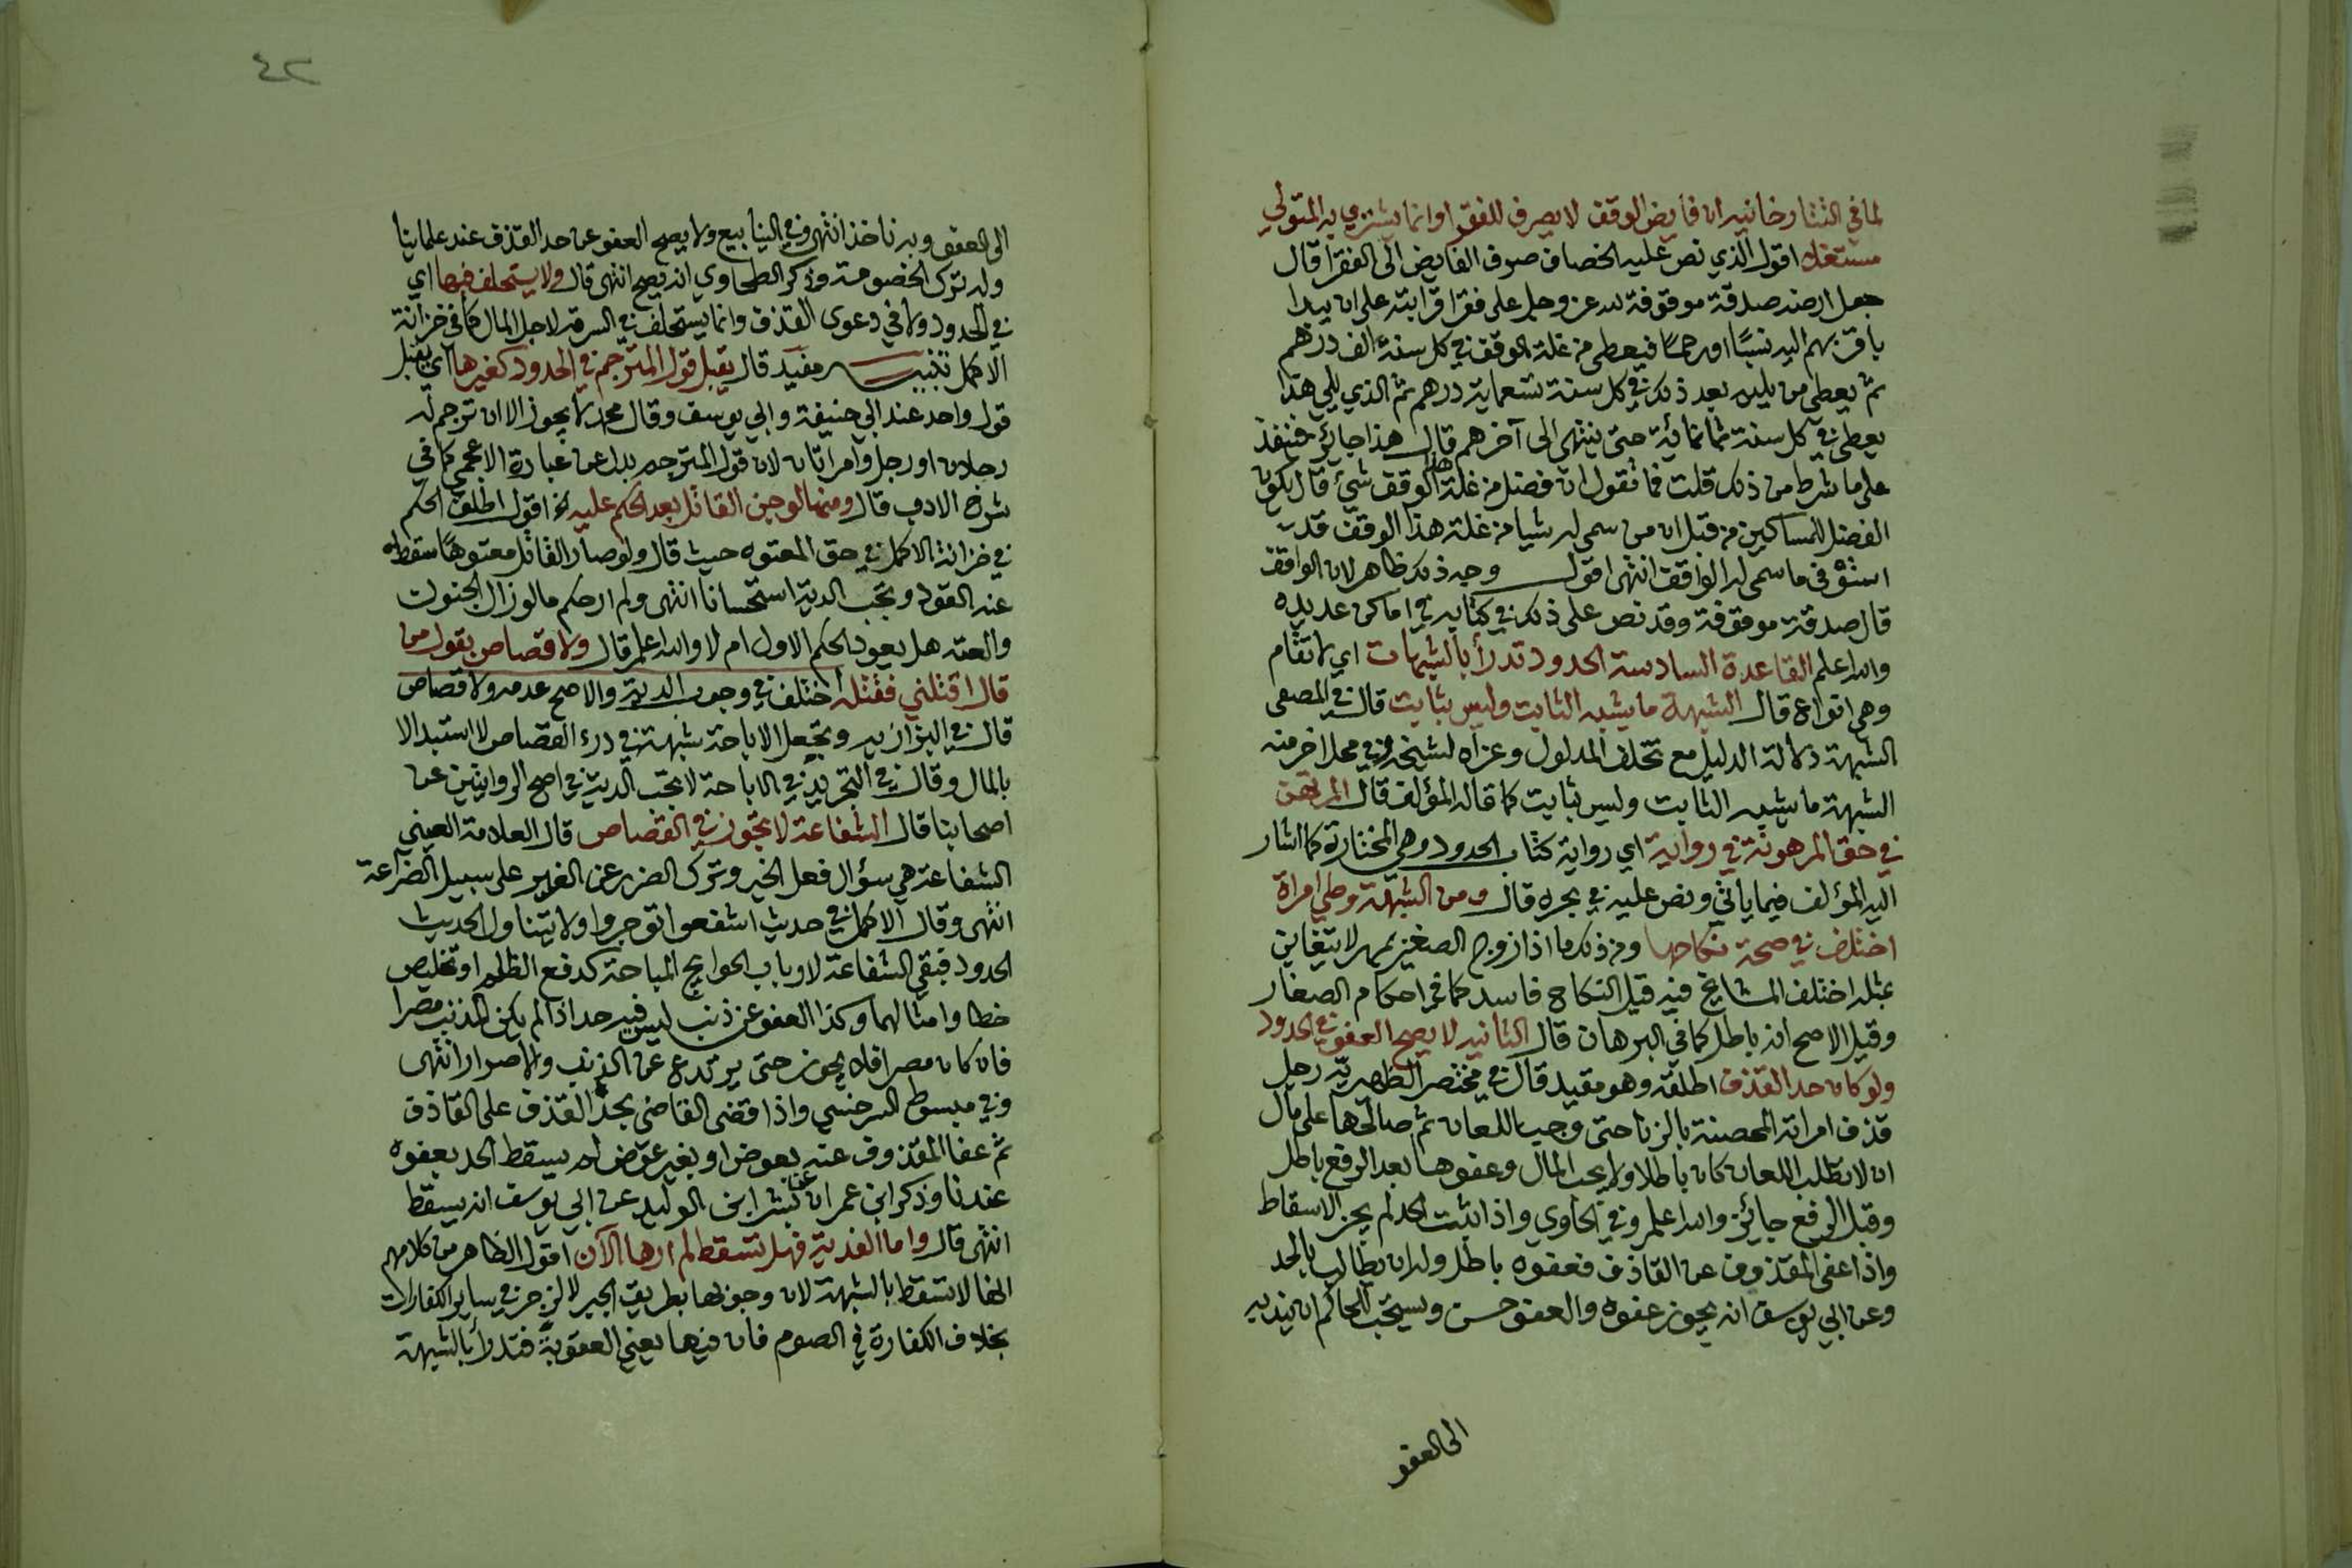 لما في التتارخانيه ان فايض الوقف لا يصرف للفقرا وانما يشتري به المتولي
مستغلا اقول الذي نص عليه الخصاف صرف الفايض الى الفقرا قال
جعل ارضه صدقة موقوفة لله عز وجل على فقرا قرابته على ان يبدا
باقربهم اليه نسبًا او رحمًا فيعطى من غلة الوقف في كل سنة الف درهم
ثم يعطى من يليه بعد ذلك في كل سنة تسعماية درهم ثم الذي يلي هذا
يعطى في كل سنة ثمانمائية حتى ينتهى الى آخرهم قال هذا جايز فتنفذ
على ما شرط من ذلك قلت فما تقول ان فضل من غلة هذا الوقف شيء قال يكون
الفضل للمساكين من قبل ان من سمى له شيا من غلة هذا الوقف قد
استوفى ما سمى له الواقف انتهى اقول وجه ذلك ظاهر لان الواقف
قال صدقة موقوفة وقد نص على ذلك في كتابه في اماكن عديده
والله اعلم القاعدة السادسة الحدود تدرأ بالشبهات اي لا تقام
وهي انواع قال الشبهة ما يشبه الثابت وليس بثابت قال في المصفى
الشبهة دلالة الدليل مع تخلف المدلول وعزاه لشيخه وفي محل اخر منه
الشبهة ما يشبه الثابت وليس بثابت كما قاله المؤلف قال المرتهن
في حق المرهونة في رواية اي رواية كتاب الحدود وهي المختارة كما اشار
اليه المؤلف فيما ياتي ونص عليه في بحره قال ومن الشبهة وطي امراة
اختلف في صحة نكاحها ومن ذلك ما اذا زوج الصغير بمهر لا يتغابن
بمثله اختلف المشايخ فيه قيل النكاح فاسد كما في احكام الصغار
وقيل الاصح انه باطل كما في البرهان قال الثانيه لا يصح العفو في الحدود
ولو كان حد القذف اطلقه وهو مقيد قال في مختصر الظهيرية رجل
قذف امراته المحصنة بالزنا حتى وجب اللعان ثم صالحها على مال
ان لا تطلب اللعان كان باطلا ولا يجب المال وعفوها بعد الرفع باطل
وقبل الرفع جائز والله اعلم وفي الحاوي واذا ثبت الحد لم يجز الاسقاط
واذا عفى المقذوف عن القاذف فعفوه باطل وله ان يطالب بالحد
وعن ابي يوسف انه يجوز عفوه والعفو حسن ويستحب للحاكم ان يندبه
الى العفو
٤٢
الى العفو وبه ناخذ انتهى وفي الينابيع ولا يصح العفو عن حد القذف عند علماينا
وله ترك الخصومة وذكر الطحاوي انه يصح انتهى قال ولا يستحلف فيها اي
في الحدود ولا في دعوى القذف وانما يستحلف في السرقة لاجل المال كما في خزانة
الاكمل تنبيه مفيد قال يقبل قول المترجم في الحدود كغيرها اي يقبل
قول واحد عند ابي حنيفة وابي يوسف وقال محمد لا يجوز الا ان ترجم له
رجلان او رجل وامراتان لان قول المترجم بدل عن عبارة الاعجمي كما في
شرح الادب قال ومنها لو جن القاتل بعد الحكم عليه الخ اقول اطلق الحكم
في خزانة الاكمل في حق المعتوه حيث قال ولو صار القاتل معتوهًا سقط
عنه القود وتجب الدية استحسانا انتهى ولم ار حكم ما لو زال الجنون
والعته هل يعود الحكم الاول ام لا والله اعلم قال ولا قصاص بقول من
قال اقتلني فقتله اختلف في وجوب الدية والاصح عدمه ولا قصاص
قال في البزازيه وتجعل الاباحة شبهة في درء القصاص لا استبدالا
بالمال وقال في التجريد في الاباحة لا تجب الدية في اصح الروايتين عن
اصحابنا قال الشفاعة لا تجوز في القصاص قال العلامة العيني
الشفاعة هي سؤال فعل الخير وترك الضرر عن الغير على سبيل الضراعة
انتهى وقال الاكمل في حديث اشفعوا توجروا ولا يتناول الحديث
الحدود فبقي الشفاعة لارباب الحوايج المباحة كدفع الظلم او تخليص
خطا وامثالهما وكذا العفو عن ذنب ليس فيه حد اذا لم يكن المذنب مصرا
فان كان مصرا فلا يجوز حتى يرتدع عن الذنب والاصرار انتهى
وفي مبسوط السرخسي واذا قضى القاضى بحد القذف على القاذف
ثم عفا المقذوف عنه بعوض او بغير عوض لم يسقط الحد بعفوه
عندنا وذكر ابن عمران عن بشر ابن الوليد عن ابي يوسف انه يسقط
انتهى قال واما الفدية فهل تسقط لم ارها الآن اقول الظاهر من كلامهم
انها لا تسقط بالشبهة لان وجوبها بطريق الجبر لا الزجر في ساير الكفارات
بخلاف الكفارة في الصوم فان فيها معنى العقوبة فتدرأ بالشبهة